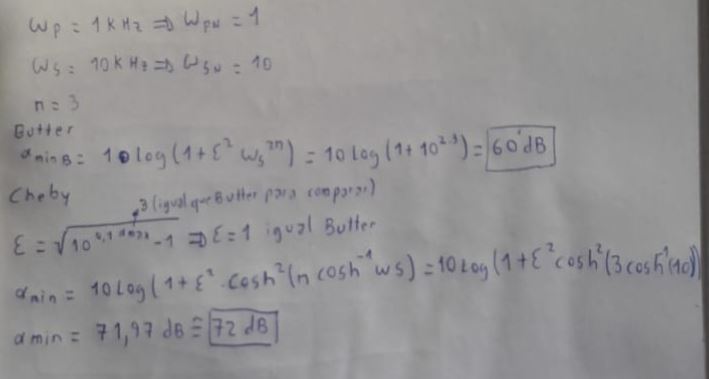 Wp = 1 KHz ⇒ WpN = 1
Ws = 10K Hz ⇒ WsN = 10
n = 3
Butter
αminB = 10 log (1 + ε² Ws²ⁿ) = 10 log (1 + 10²·³) = 60 dB
Cheby
3 (igual que Butter para comparar)
ε = √(10^(0,1 αmax) - 1) ⇒ ε = 1 igual Butter
αmin = 10 Log (1 + ε² . cosh² (n cosh⁻¹ ws) = 10 Log (1 + ε² cosh² (3 cosh⁻¹ (10))
αmin = 71,97 dB ≅ 72 dB